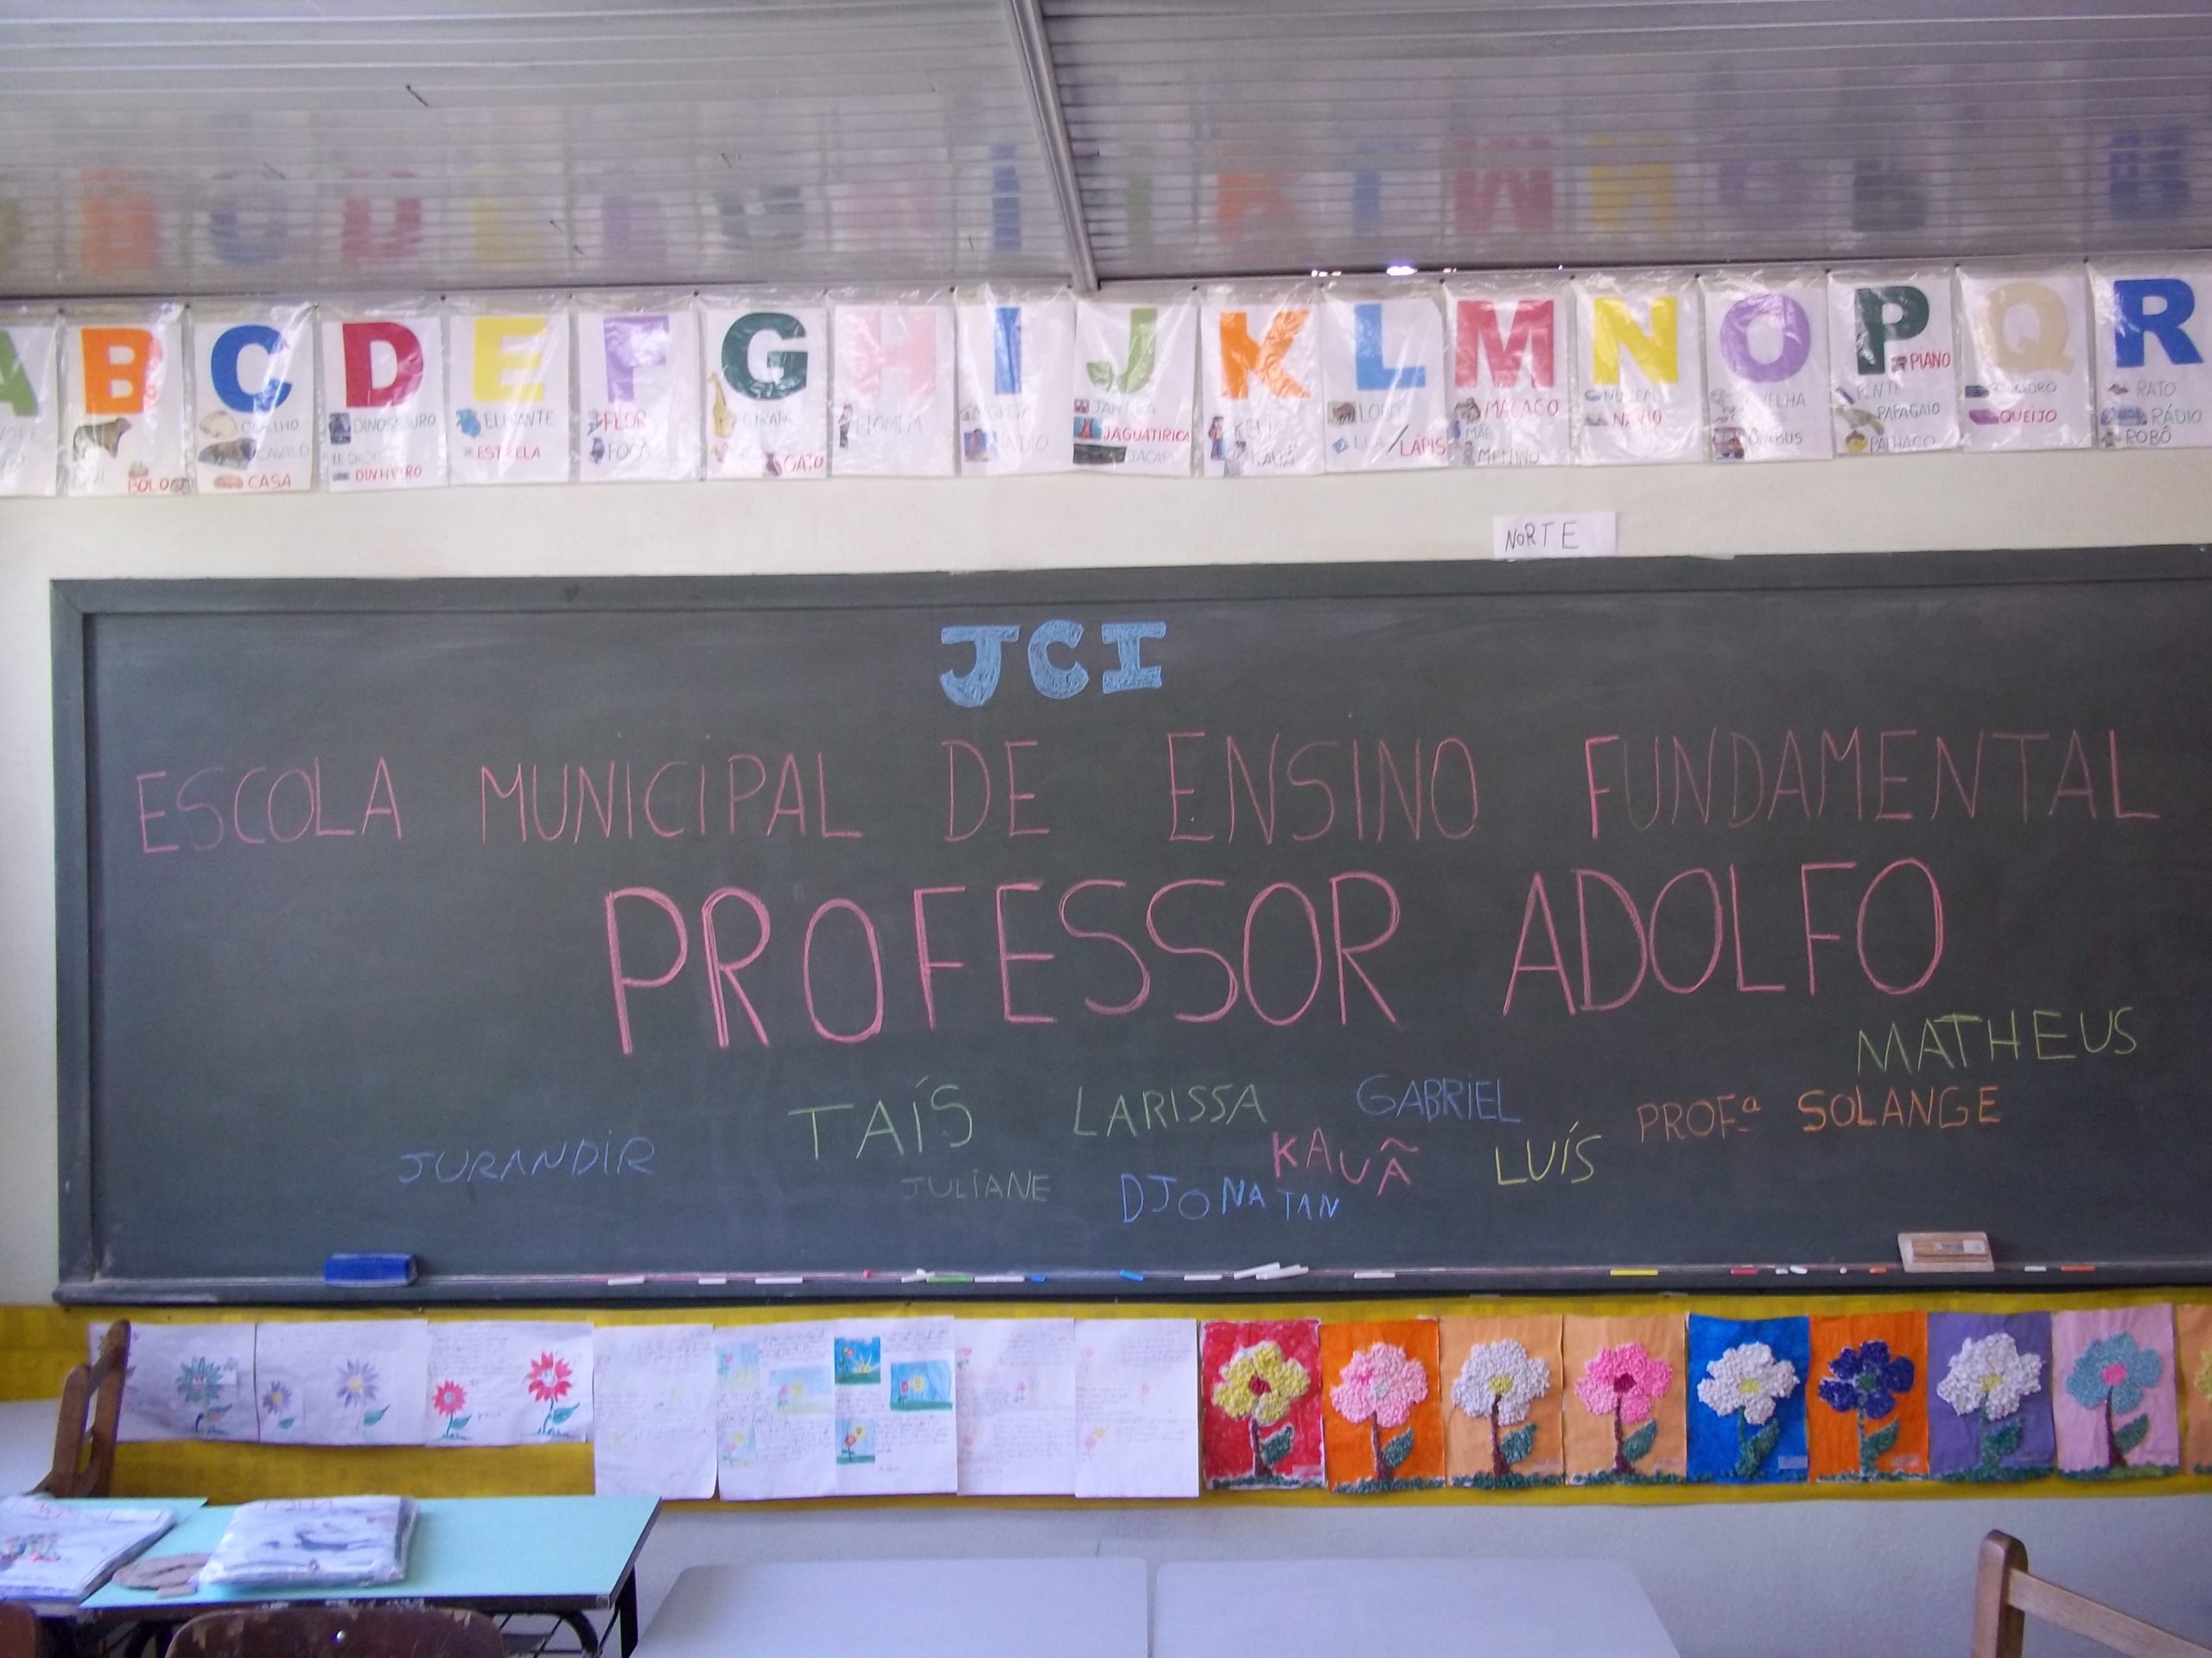 A B C D E F G H I J K L M N O P Q R
BOLO
COELHO
CAVALO
CASA
DINOSSAURO
DINHEIRO
ELEFANTE
ESTRELA
FLOR
FOCA
GIRAFA
GATO
HOMEM
IGREJA
ÍNDIO
JANELA
JAGUATIRICA
JACARÉ
LOBO
LUA
LÁPIS
MACACO
MÃE
MENINO
NUVEM
NAVIO
OVELHA
ÔNIBUS
PIANO
PENTE
PAPAGAIO
PALHAÇO
QUEIJO
RATO
RÁDIO
ROBÔ
NORTE
JCI
ESCOLA MUNICIPAL DE ENSINO FUNDAMENTAL
PROFESSOR ADOLFO
MATHEUS
JURANDIR TAÍS LARISSA GABRIEL PROFª SOLANGE
JULIANE DJONATAN KAUÃ LUÍS